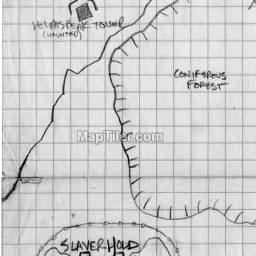 VELMASPEAK TOWER
(HAUNTED)
CONIFEROUS
FOREST
MapTiler.com
SLAVERHOLD